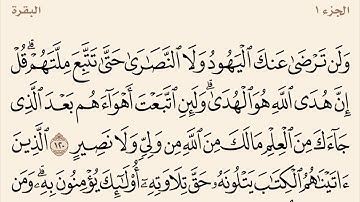 الجزء ١ البقرة
وَلَن تَرْضَىٰ عَنكَ ٱلْيَهُودُ وَلَا ٱلنَّصَٰرَىٰ حَتَّىٰ تَتَّبِعَ مِلَّتَهُمْ ۗ قُلْ
إِنَّ هُدَى ٱللَّهِ هُوَ ٱلْهُدَىٰ ۗ وَلَئِنِ ٱتَّبَعْتَ أَهْوَآءَهُم بَعْدَ ٱلَّذِى
جَآءَكَ مِنَ ٱلْعِلْمِ مَا لَكَ مِنَ ٱللَّهِ مِن وَلِىٍّ وَلَا نَصِيرٍ ١٢٠ ٱلَّذِينَ
ءَاتَيْنَٰهُمُ ٱلْكِتَٰبَ يَتْلُونَهُۥ حَقَّ تِلَاوَتِهِۦٓ أُو۟لَٰٓئِكَ يُؤْمِنُونَ بِهِۦ ۗ وَمَن